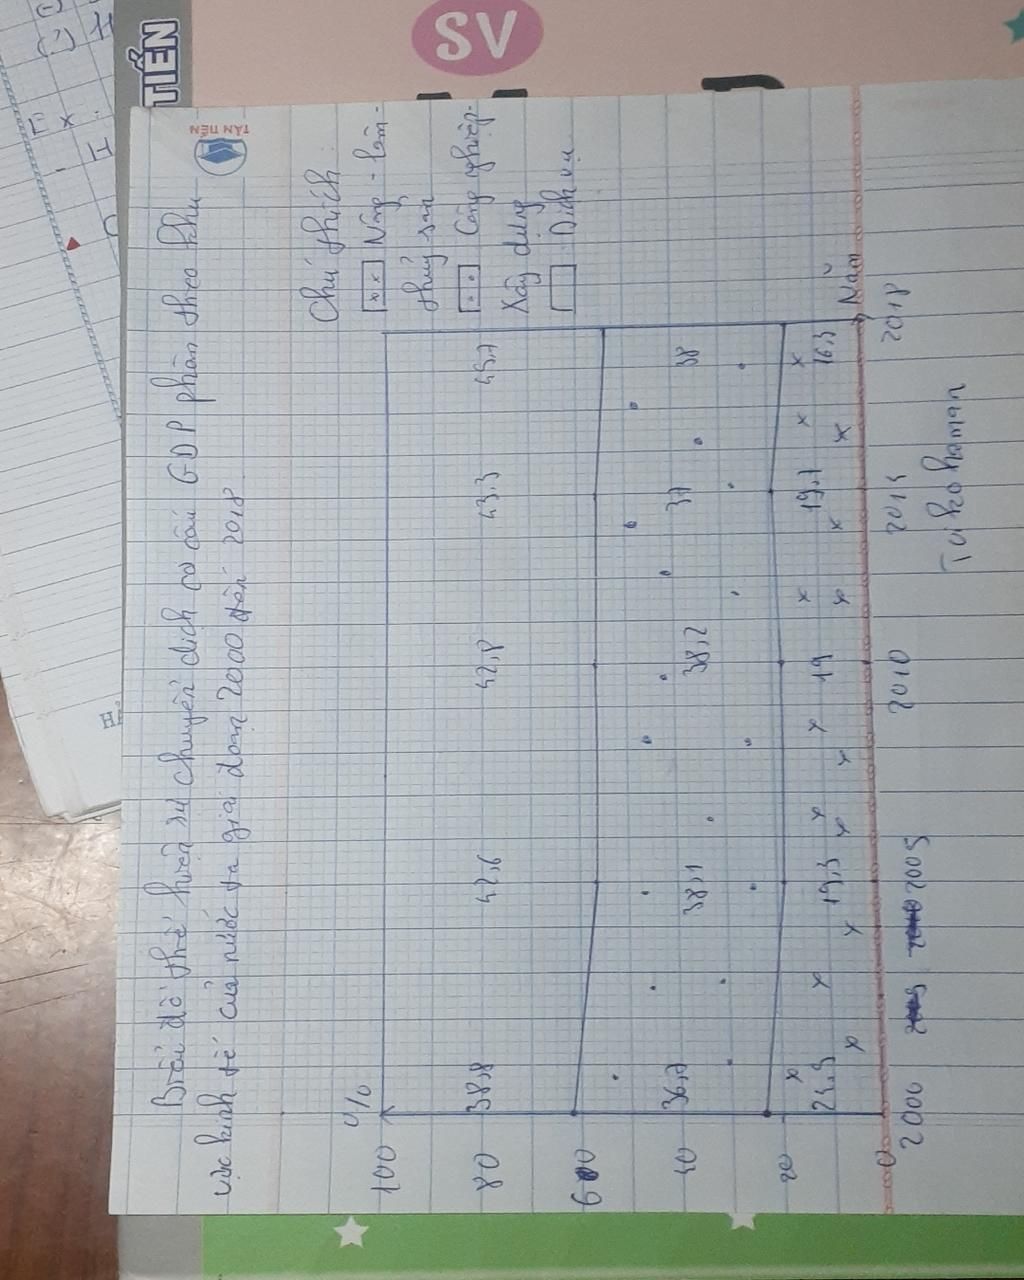 SV
TIẾN
TÂN TIẾN
Biểu đồ thể hiện sự chuyển dịch cơ cấu GDP phân theo khu
vực kinh tế của nước ta giai đoạn 2000 đến 2018
%
Chú thích:
Nông - lâm -
thuỷ sản
Công nghiệp -
Xây dựng
Dịch vụ
100
80
600
40
20
0
38,8
42,6
42,8
43,3
45,7
36,7
38,1
38,2
37
38
24,5
19,3
19
19,7
16,3
2000
2005
2010
2015
2018
Năm
Tukohaman